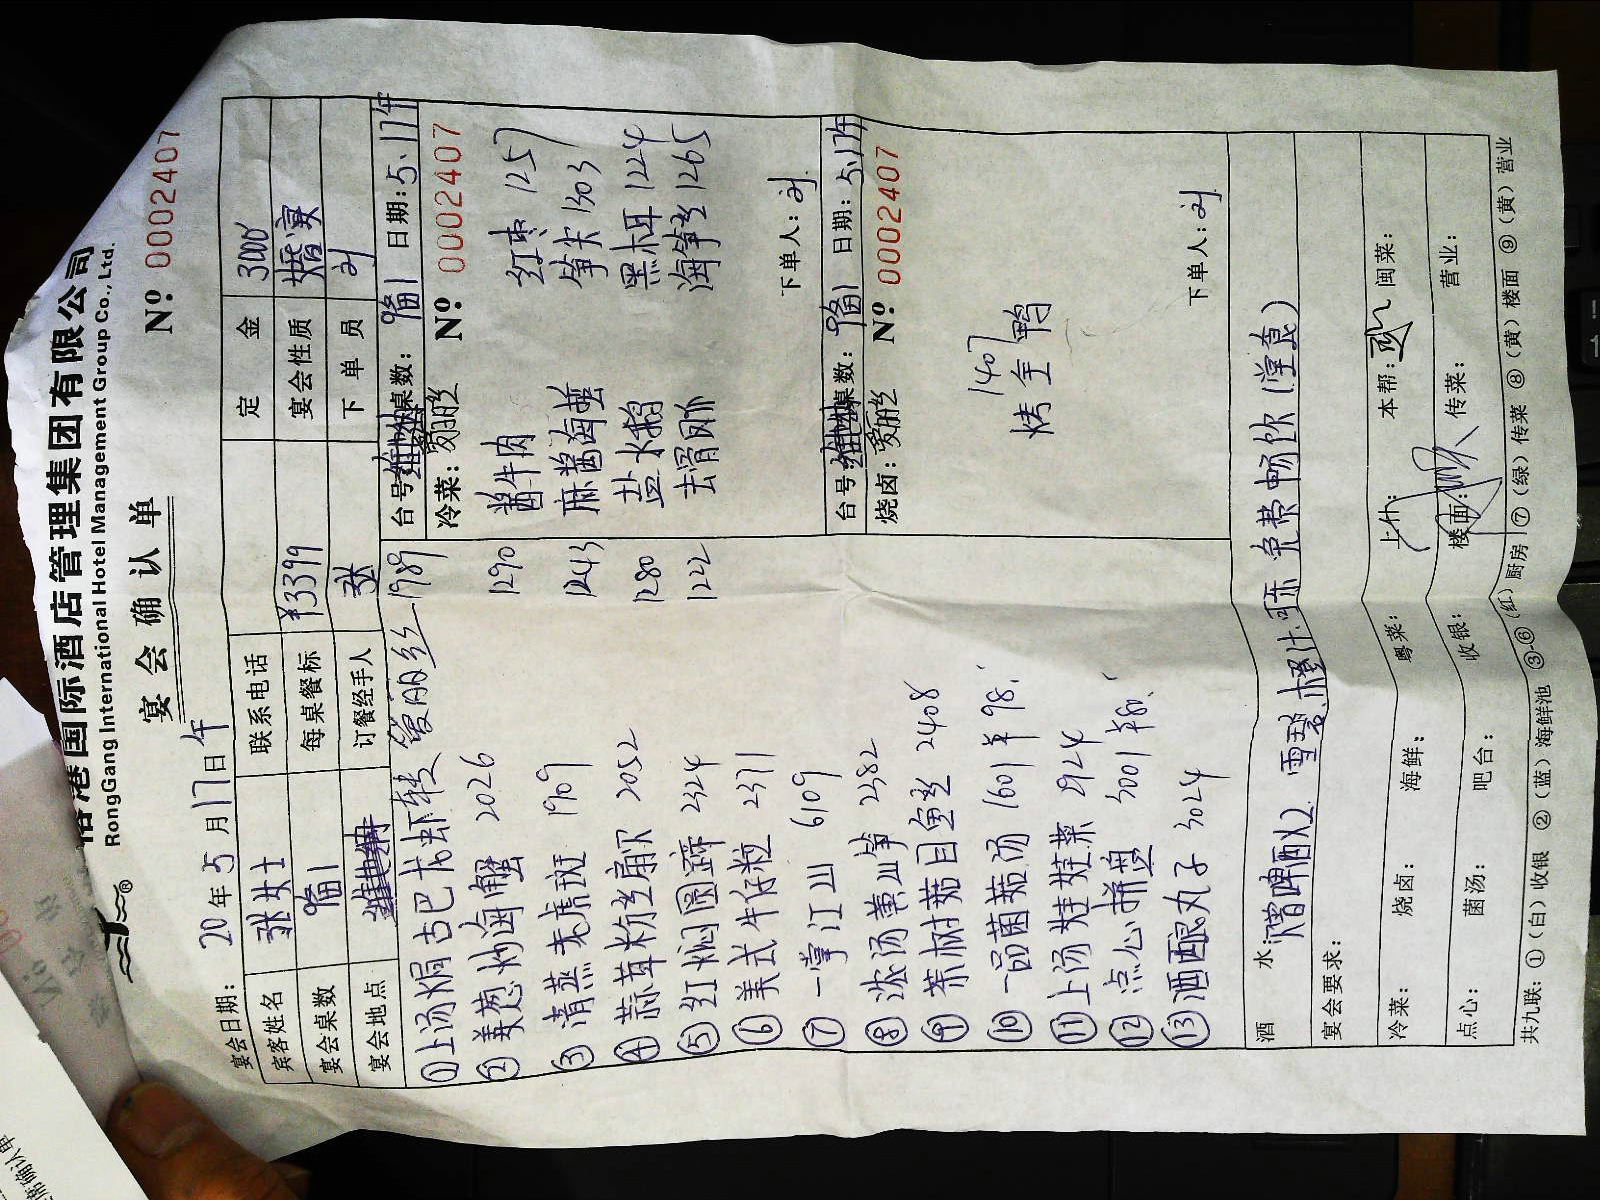 港国际酒店管理集团有限公司
RongGang International Hotel Management Group Co., Ltd.
®
宴会确认单
№ 0002407
宴会日期: 20 年 5 月 17 日 午
宾客姓名 张女士 联系电话 定金 3000
宴会桌数 9备1 每桌餐标 ¥3399 宴会性质 婚宴
宴会地点 订餐经手人 张 下单员 刘
①上汤焗古巴龙虾 转 爱丽丝 1989
②姜葱炒海蟹 2026
③清蒸老虎斑 1909
④蒜茸粉丝扇贝 2052
⑤红焖圆蹄 2324
⑥美式牛仔粒 2311
⑦一掌江山 6109
⑧浓汤萬山笋 2382
⑨茶树菇目鱼丝 2408
⑩一品菌菇汤 1601 ¥98.
⑪上汤娃娃菜 2924
⑫点心拼盘 3001 ¥80.
⑬酒酿丸子 3024
台号 桌数: 9备1 日期: 5.17午
冷菜: 爱丽丝 № 0002407
1290 酱牛肉 红枣 1257
1243 麻酱海蜇 笋尖 1303
1280 盐水鹅 黑木耳 1224
1222 去骨凤爪 海笋丝 1265
下单人: 刘
台号: 桌数: 9备1 日期: 5.17午
烧卤: 爱丽丝 № 0002407
1407
烤全鸭
下单人: 刘
酒水: 赠啤酒X2 雪碧.橙汁.可乐 免费畅饮 (堂食)
宴会要求:
冷菜: 烧卤: 海鲜: 粤菜: 上什: 本帮: 闽菜:
点心: 菌汤: 吧台: 收银: 楼面: 传菜: 营业:
共九联: ①(白)收银 ②(蓝)海鲜池 ③-⑥(红)厨房 ⑦(绿)传菜 ⑧(黄)楼面 ⑨(黄)营业